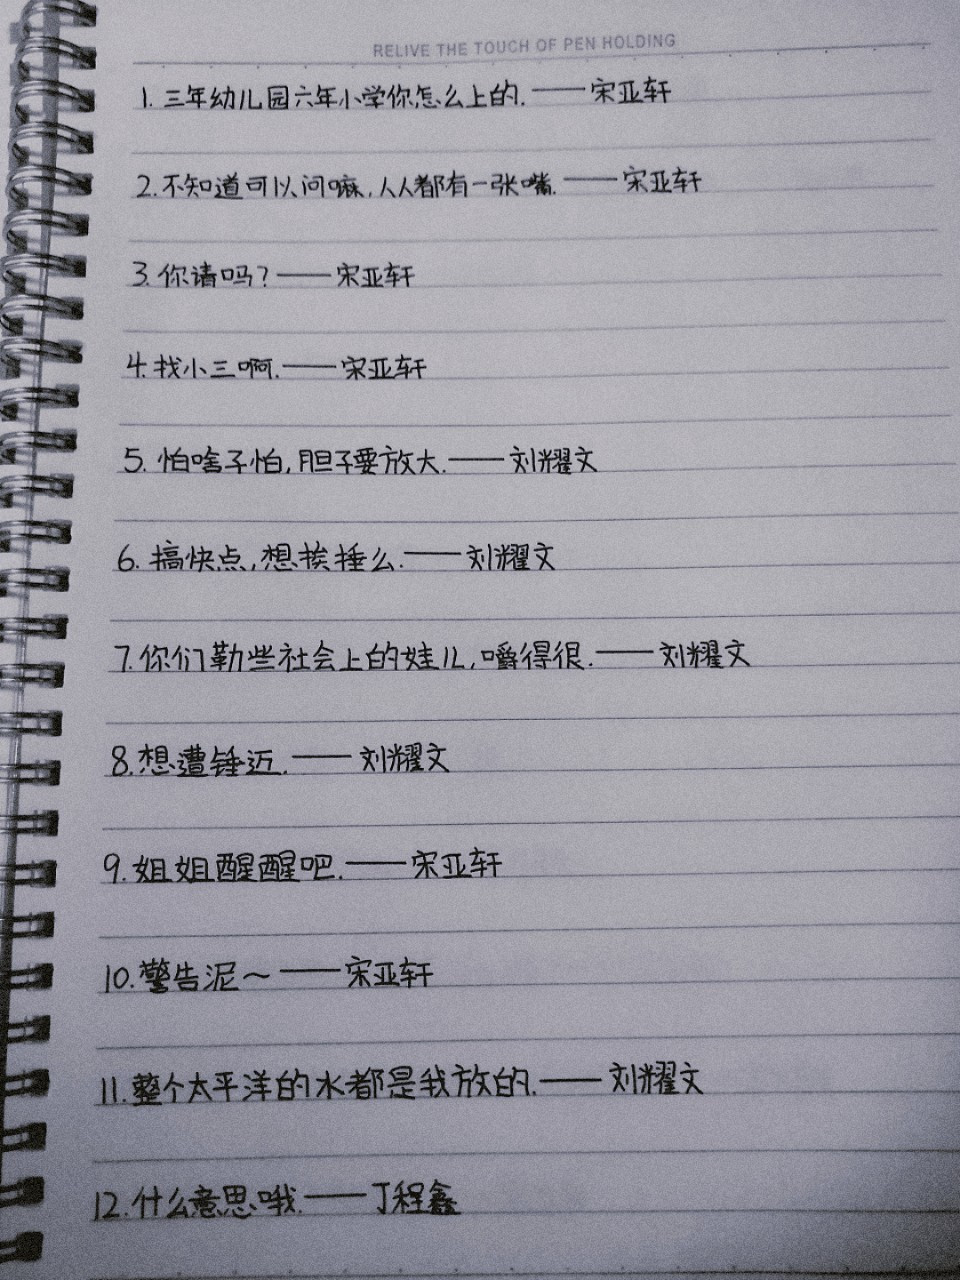 RELIVE THE TOUCH OF PEN HOLDING
1. 三年幼儿园六年小学你怎么上的.——宋亚轩
2.不知道可以问嘛,人人都有一张嘴.——宋亚轩
3.你请吗?——宋亚轩
4.找小三啊.——宋亚轩
5. 怕啥子怕,胆子要放大.——刘耀文
6. 搞快点,想挨捶么.——刘耀文
7.你们勒些社会上的娃儿,嚼得很.——刘耀文
8.想遭锤近.——刘耀文
9.姐姐醒醒吧.——宋亚轩
10.警告泥~——宋亚轩
11.整个太平洋的水都是我放的.——刘耀文
12.什么意思哦.——丁程鑫